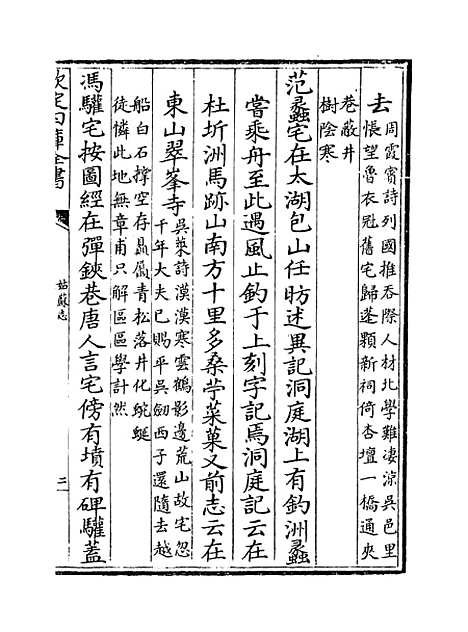 去周霞甯詩列國推吞際人材北學難淒涼吳邑里
悵望魯衣冠舊宅歸蓬顆新祠倚杏壇一橋通夾
巷蔽井
樹陰寒
范蠡宅在太湖包山任昉述異記洞庭湖上有釣洲蠡
嘗乘舟至此遇風止釣于上刻字記焉洞庭記云在
杜圻洲馬跡山南方十里多桑苧菜菓又前志云在
東山翠峯寺吳萊詩漠漠寒雲鶴影邊荒山故宅忽
千年大夫已賜平吳劒西子還隨去越
船白石撐空存贔屭青松落井化蜿蜒
徒憐此地無章甫只解區區學計然
馮驩宅按圖經在彈鋏巷唐人言宅傍有墳有碑驩蓋
欽定四庫全書
姑蘇志
二